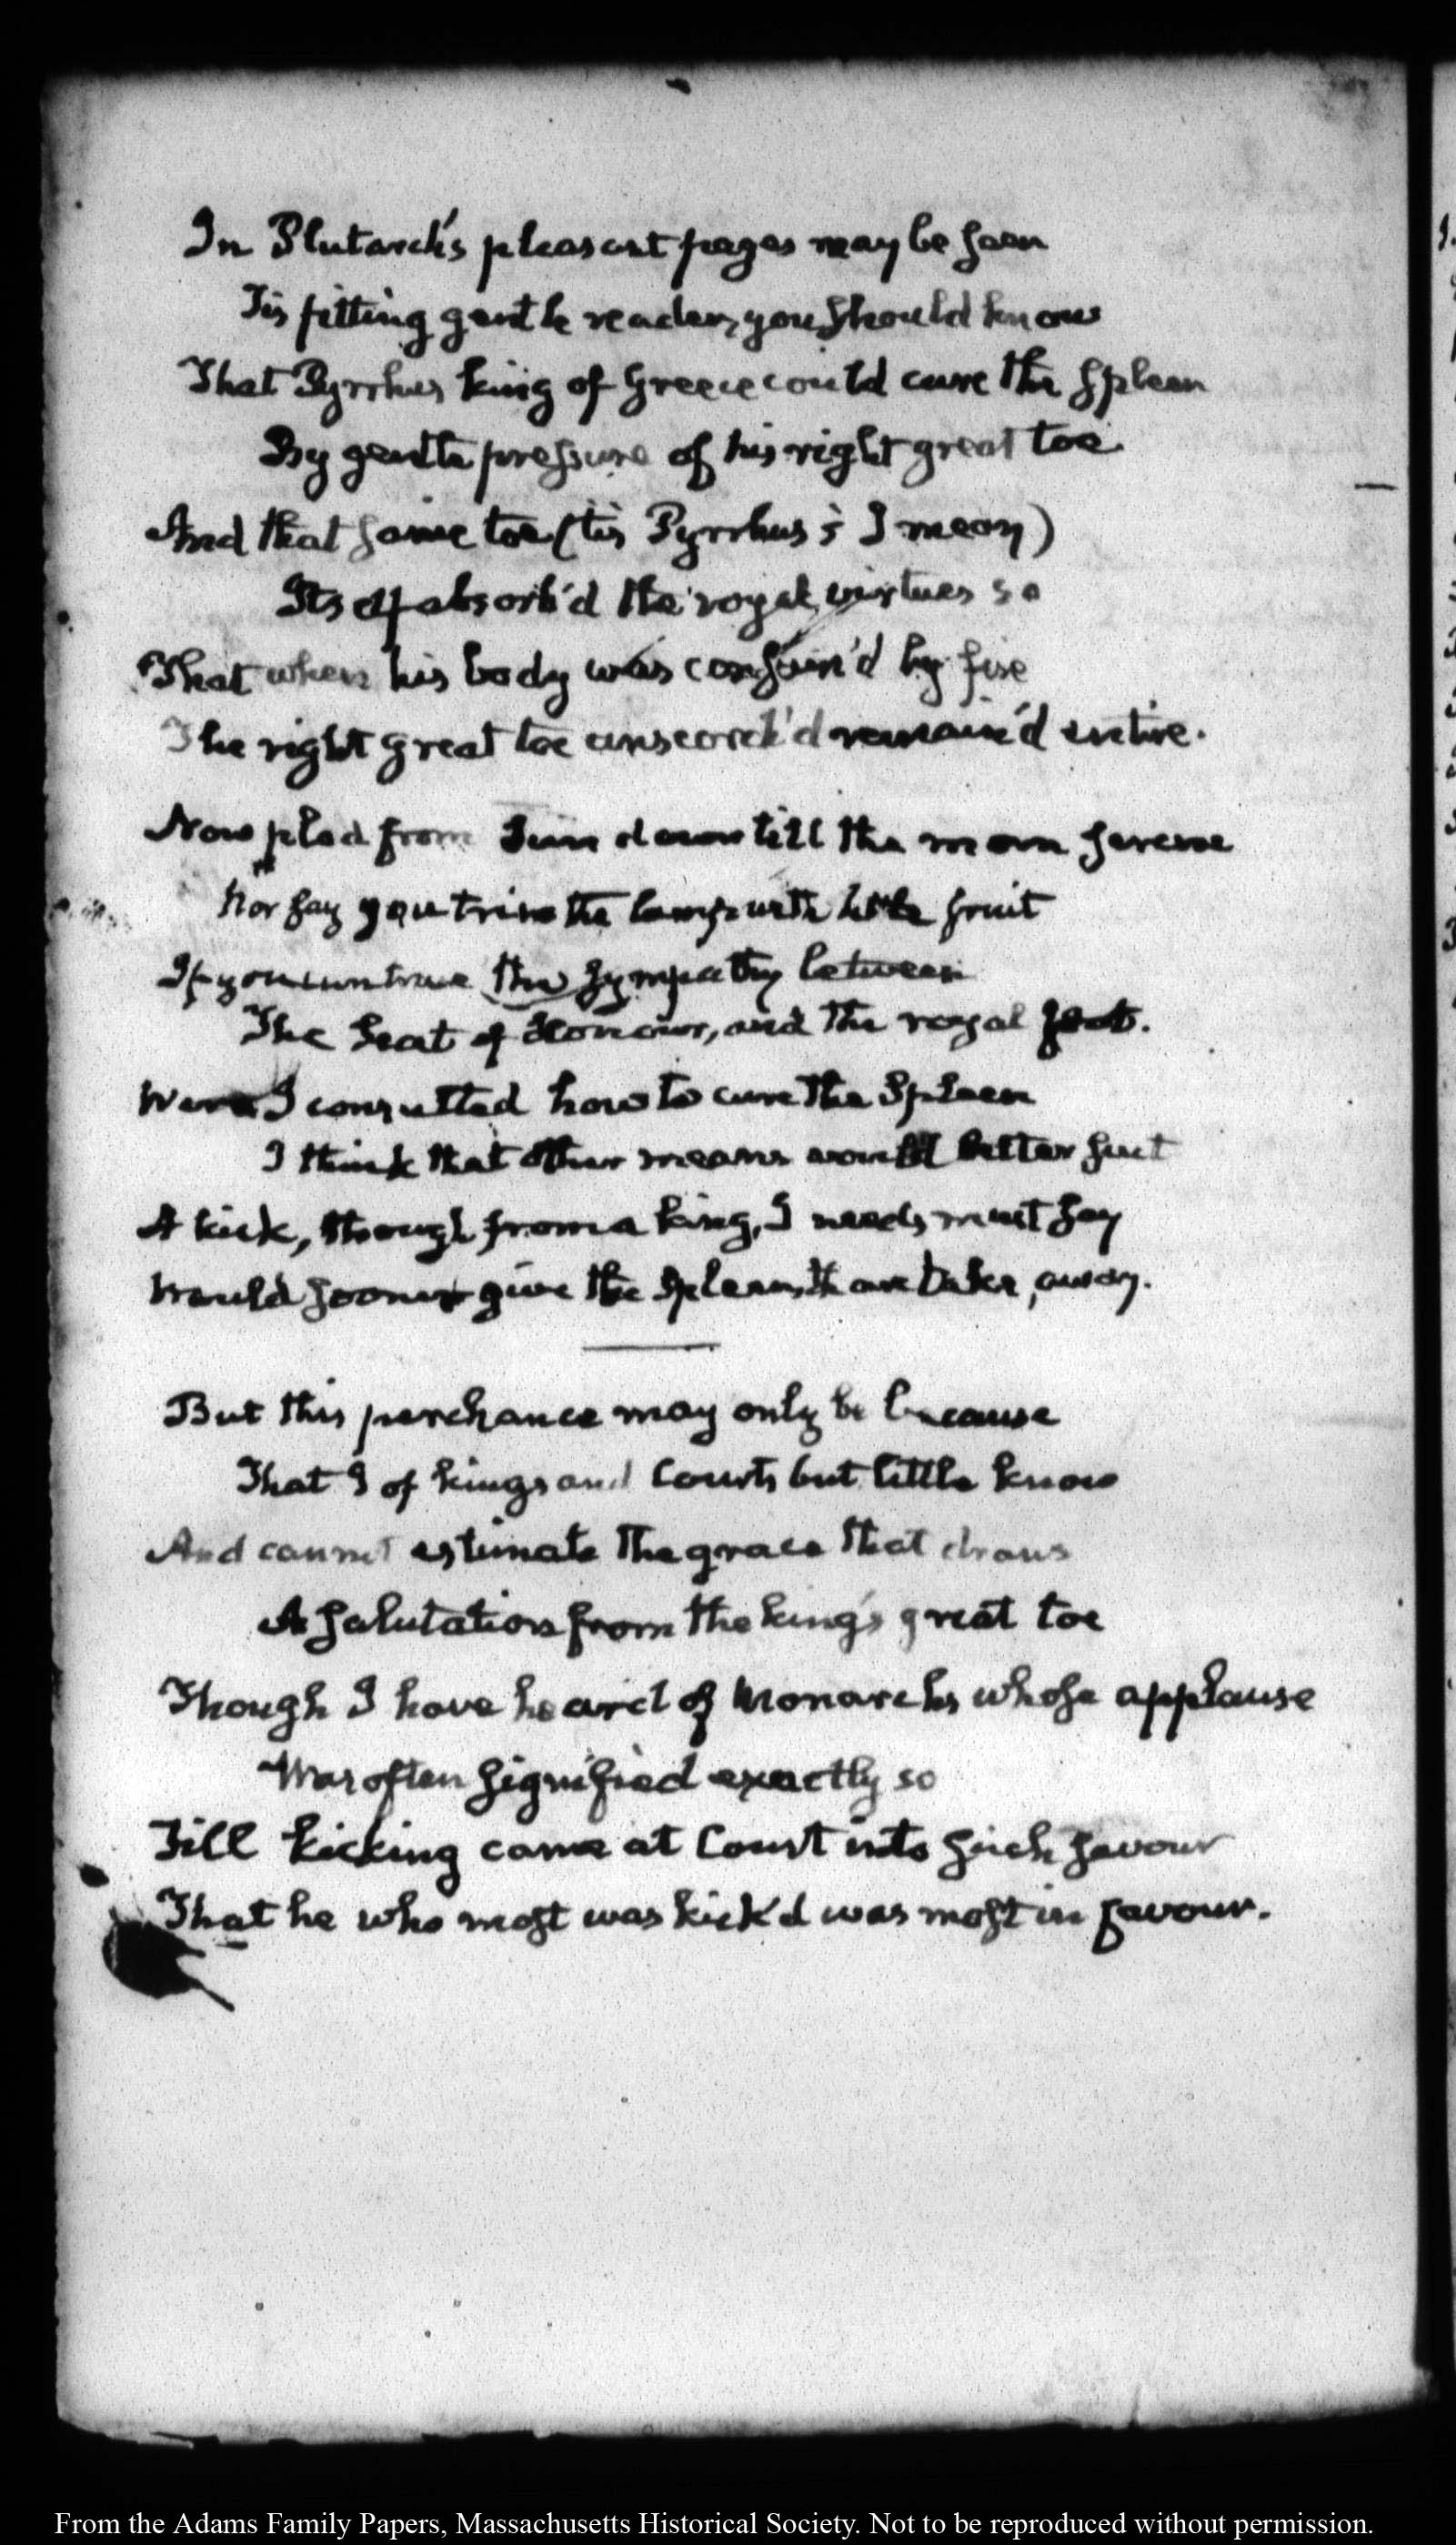 In Plutarch's pleasant pages may be seen
Tis fitting gentle reader, you should know
That Pyrrhus king of Greece could cure the spleen
By gentle pressure of his right great toe.
And that same toe (tis Pyrrhus's I mean)
Itself absorb'd the royal virtues so
That when his body was consum'd by fire
The right great toe unscorch'd remain'd entire.
Now plod from Sun down till the morn serene
Nor say you trim the lamp with little fruit
If you can trace the sympathy between
The Seat of Honour, and the royal foot.
Were I consulted how to cure the Spleen
I think that other means would better suit
A kick, though from a king, I needs must say
Would sooner give the Spleen, than take, away.
But this perchance may only be because
That I of kings and Courts but little know
And cannot estimate the grace that draws
A salutation from the king's great toe
Though I have heard of Monarchs whose applause
Was often signified exactly so
Till kicking came at Court into such favour
That he who most was kick'd was most in favour.
From the Adams Family Papers, Massachusetts Historical Society. Not to be reproduced without permission.